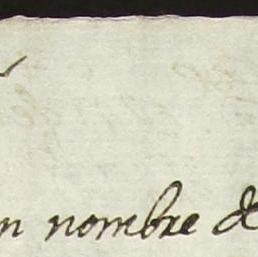 n nombre de